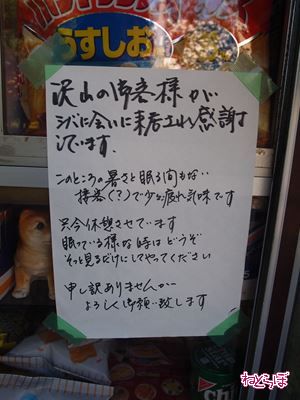 うすしお
沢山の御客様が
シバに会いに来店され感謝し
ています.
このところの暑さと眠る間もない
接客(?)で少々疲れ気味です
只今休憩させています
眠っている様な時はどうぞ
そっと見るだけにしてやってください
申し訳ありませんが
よろしく御願い致します
ねとらぼ